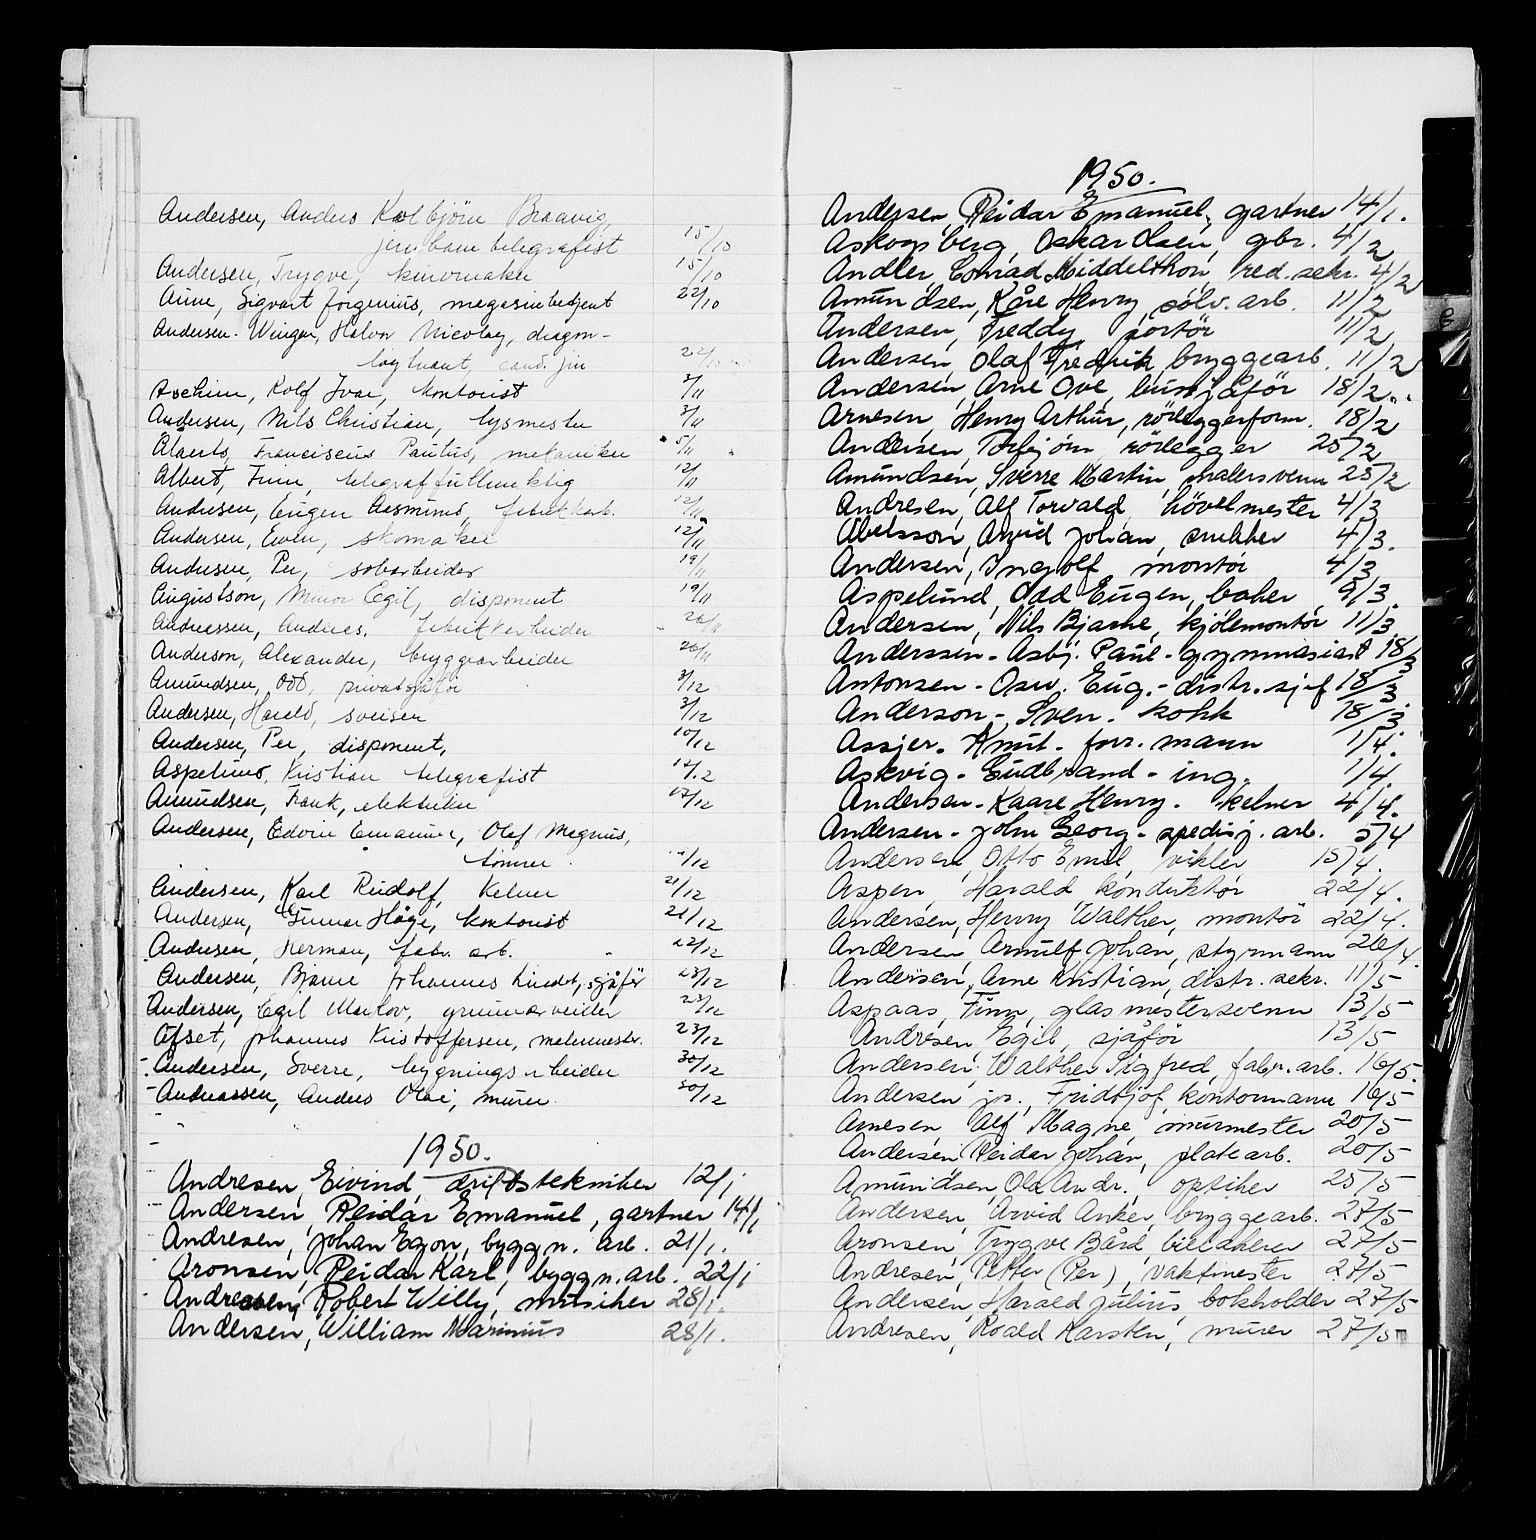 Andersen, Anders Kolbjörn Braavig,
jernbanetelegrafist 15/10
Andersen, Trygve, kinomaskin 15/10
Aune, Sigvart Jørgenius, magasinbetjent 22/10
Andersen-Winger, Halvor Nicolay, diagon-
cand. jur 22/10
Aschim, Rolf Ivar, kontorist 3/11
Andersen, Nils Christian, lysmester 3/11
Alaerts, Franciscus Paulus, mekaniker 5/11
Albert, Finn, telegraffullmektig 12/11
Andersen, Eugen Aasmund, fabrikkarb. 12/11
Andersen, Even, skomaker 12/11
Andersen, Per, solearbeider 19/11
Augustson, Einar Egil, disponent 19/11
Andreassen, Anders, fabrikkarbeider 26/11
Anderson, Alexander, bryggearbeider 26/11
Amundsen, Odd, privatsjåför 3/12
Andersen, Harald, sveiser 3/12
Andersen, Per, disponent, 10/12
Aspelund, Kristian telegrafist 14/12
Amundsen, Frank, elektriker 17/12
Andersen, Edvin Emanuel, Olaf Magnus,
tömrer /12
Andersen, Karl Rudolf, kelner 21/12
Andersen, Gunnar Håge, kontorist 21/12
Andersen, Herman, fabr. arb. 22/12
Andersen, Bjarne Johannes Lindet, sjåför 23/12
Andersen, Egil Markov, grunnarbeider 23/12
Ofset, Johannes Kristoffersen, malermester. 23/12
Andersen, Sverre, bygningsarbeider 30/12
Andreassen, Anders Olai, murer 30/12
1950.
Andresen, Eivind, driftstekniker 12/1
Andersen, Reidar Emanuel, gartner 14/1
Andresen, Johan Egon, byggn. arb. 21/1.
Aronsen, Reidar Karl, byggn. arb. 22/1
Andreassen, Robert Willy, musiker 28/1.
Andersen, William Marinius 28/1.
1950.
Andersen, Reidar Emanuel, gartner 14/1.
Askogsberg, Oskar Olsen, gbr. 4/2
Andler Conrad Middelthon red. sekr. 4/2
Amundsen, Kåre Henry, sølv. arb. 11/2
Andersen, Freddy, portör 11/2
Andersen, Olaf Fredrik, bryggearb. 11/2
Andersen, Arne Ove, bussjåför 18/2.
Arnesen, Henry Arthur, rörleggerform. 18/2
Andersen, Torbjörn, rörlegger 25/2
Amundsen, Sverre Martin, malersvenn 25/2
Andresen, Alf Torvald, hövelmester 4/3
Abelsson, Arvid Johan, snekker 4/3.
Andersen, Ingolf, montör 4/3
Aspelund, Odd Eugen, baker 9/3.
Andersen, Nils Bjarne, kjölemontör 11/3
Anderssen - Asbj. Paul - gymnasiast 18/3
Antonsen - Osw. Eug. - distr. sjef 18/3.
Anderson - Sven. kokk 18/3
Assjer. Knut - forr. mann 1/4.
Askvig - Gudbrand - ing. 1/4
Andersen - Kaare Henry. kelner 4/4.
Andersen - John Georg - spedisj. arb. 5/4
Andersen, Otto Emil, vikler 15/4.
Aspen, Harald konduktör 22/4.
Andersen, Henry Walther, montör 22/4.
Andersen, Arnulf Johan, styrmann 26/4.
Andersen, Arne Kristian, distr. sekr. 11/5
Aspaas, Finn, glasmestersvenn 13/5
Andresen Egil, sjåför 13/5
Andersen, Walther Sigfred, fabr. arb. 16/5.
Andersen jr., Fridtjof, kontormann 16/5
Arnesen, Alf Magne, murmester 20/5
Andersen Reidar Johan, platearb. 20/5
Amundsen Ola Andr., optiker 25/5
Andersen, Arvid Anker, bryggearb. 27/5
Aronsen, Trygve Bård, billakerer 27/5
Andresen, Petter (Per), vaktmester 27/5
Andersen, Harald Julius, bokholder 27/5
Andresen, Roald Karsten, murer 27/5